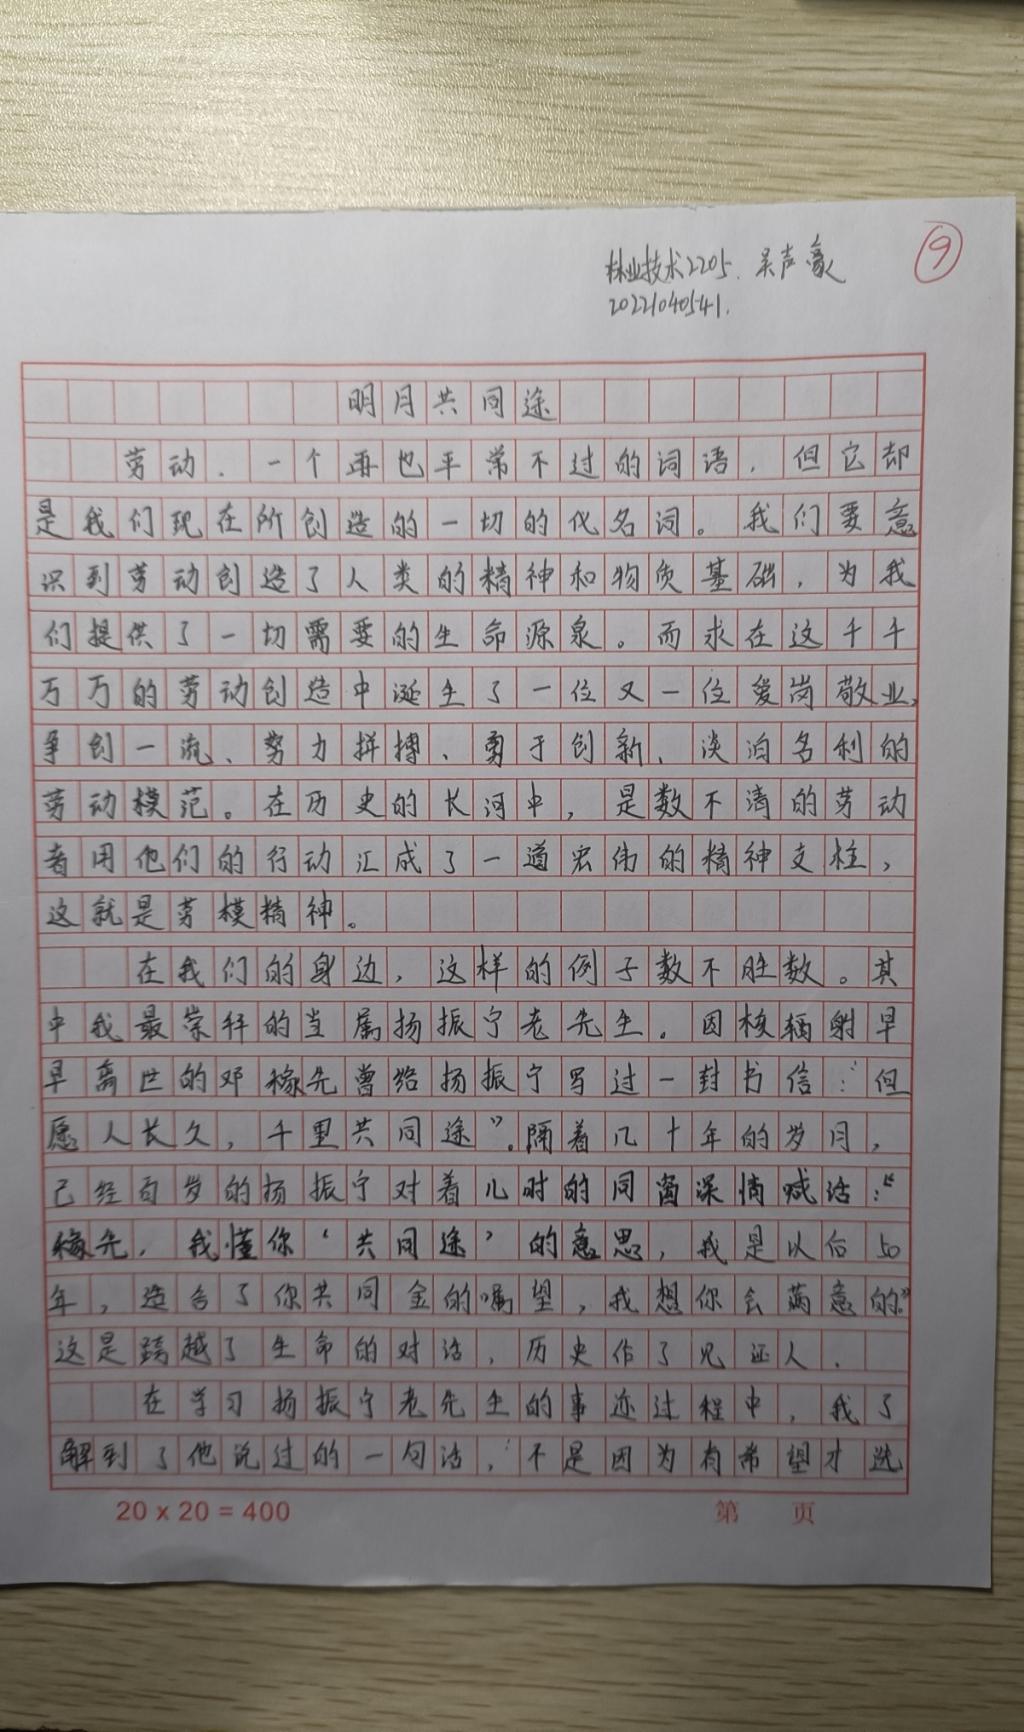 林业技术2205. 吴声豪
⑨
20221040541.
明月共同途
劳动、一个再也平常不过的词语，但它却
是我们现在所创造的一切的代名词。我们要意
识到劳动创造了人类的精神和物质基础，为我
们提供了一切需要的生命源泉。而求在这千千
万万的劳动创造中诞生了一位又一位爱岗敬业、
争创一流、努力拼搏、勇于创新、淡泊名利的
劳动模范。在历史的长河中，是数不清的劳动
者用他们的行动汇成了一道宏伟的精神支柱，
这就是劳模精神。
在我们的身边，这样的例子数不胜数。其
中我最崇拜的当属扬振宁老先生。因核辐射早
早离世的邓稼先曾给扬振宁写过一封书信：“但
愿人长久，千里共同途”。隔着几十年的岁月，
已经百岁的扬振宁对着儿时的同窗深情喊话：“
稼先，我懂你‘共同途’的意思，我是以后50
年，造合了你共同金的嘱望，我想你会满意的。”
这是跨越了生命的对话，历史作了见证人．
在学习扬振宁老先生的事迹过程中，我了
解到了他说过的一句话，“不是因为有希望才选
20 x 20 = 400
第 页